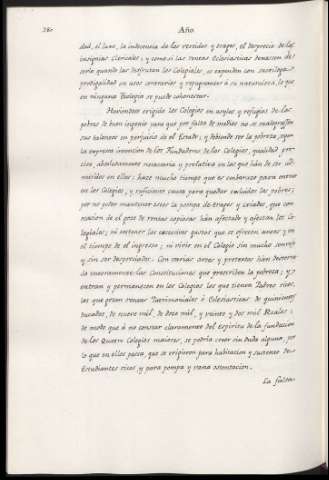 280
Año
dad, el luxo, la indecencia de los vestidos y trages, el desprecio de las
insignias Clericales; y como si las rentas Eclesiasticas dexasen de
serlo quando las disfrutan los Colegiales, se expenden con sacrilega
prodigalidad en usos contrarios y repugnantes á su naturaleza, lo que
en ninguna Teología se puede cohonestar.
Haviendose erigido los Colegios en asylos y refugios de los
pobres de buen ingenio para que por falta de medios no se malograsen
sus talentos en perjuicio de el Estado; y debiendo ser la pobreza, segun
la expresa intencion de los Fundadores de los Colegios, qualidad pre-
cisa, absolutamente necesaria y prelativa en los que hán de ser ad-
mitidos en ellos: hace mucho tiempo que es embarazo para entrar
en los Colegios, y suficiente causa para quedar excluidos los pobres;
por no poder mantener estos la pompa de trages y criados, que con
nacion de el goce de rentas copiosas hán afectado y afectan los Co-
legiales; ni sostener los excesivos gastos que se ofrecen antes y en
el tiempo de el ingreso; ni vivir en el Colegio sin mucho sonrojo
y sin ser despreciados. Con varias artes y pretextos hán desterra-
do enteramente las Constituciones que prescriben la pobreza; y
entran y permanecen en los Colegios los que tienen Padres ricos,
los que gozan rentas Patrimoniales ó Eclesiasticas de quinientos
ducados, de nueve mil, de doce mil, y veinte y dos mil Reales:
de modo que á no constar claramente del Espiritu de la fundacion
de los Colegios mayores, se podria creer sin duda alguna, por
lo que en ellos pasa, que se erigieron para habitacion y sustento de
Estudiantes ricos, y para pompa y vana ostentacion.
La falta